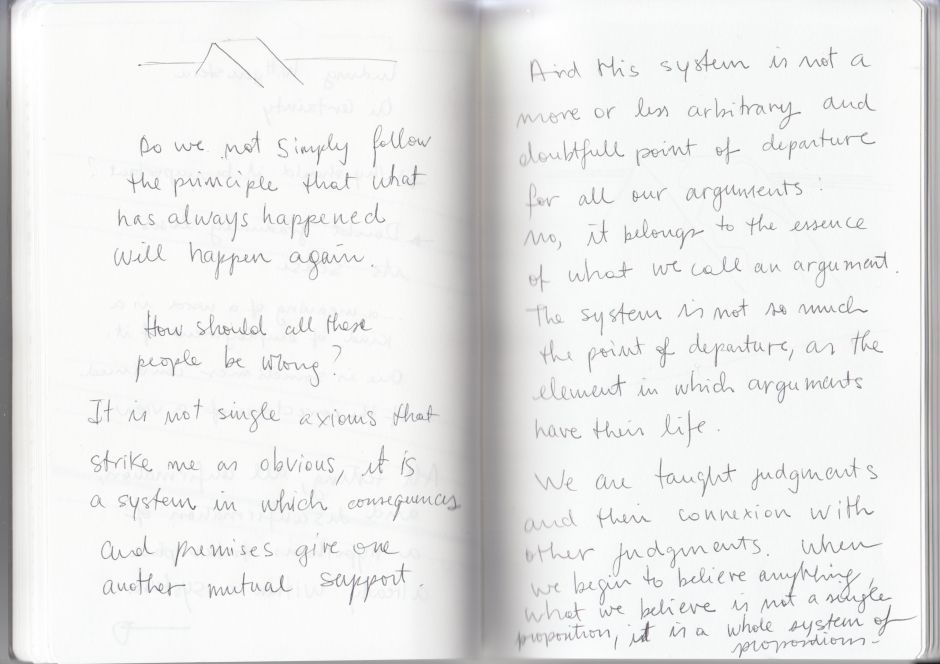 Do we not simply follow
the principle that what
has always happened
will happen again.
How should all these
people be wrong?
It is not single axioms that
strike me as obvious, it is
a system in which consequences
and premises give one
another mutual support.
And this system is not a
more or less arbitrary and
doubtfull point of departure
for all our arguments:
no, it belongs to the essence
of what we call an argument.
The system is not so much
the point of departure, as the
element in which arguments
have their life.
We are taught judgments
and their connexion with
other judgments. When
we begin to believe anything,
what we believe is not a single
proposition, it is a whole system of
propositions.